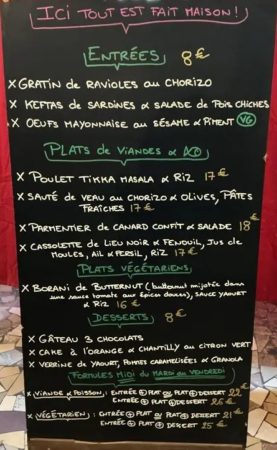 ICI TOUT EST FAIT MAISON!
ENTRÉES 8€
x GRATIN de RAVIOLES au CHORIZO
x KEFTAS de SARDINES & SALADE de POIS CHICHES
x OEUFS MAYONNAISE au SÉSAME & PIMENT VG
PLATS de VIANDES &
x POULET TIKKA MASALA & RIZ 17€
x SAUTÉ de VEAU au CHORIZO & OLIVES, PÂTES
FRAÎCHES 17€
x PARMENTIER de CANARD CONFIT & SALADE 18€
x CASSOLETTE de LIEU NOIR & FENOUIL, JUS de
MOULES, AIL & PERSIL, RIZ 17€
PLATS VÉGÉTARIENS
x BORANI de BUTTERNUT (butternut mijotée dans
une sauce tomate aux épices douces), SAUCE YAOURT
& RIZ 16€
DESSERTS 8€
x GÂTEAU 3 CHOCOLATS
x CAKE à L'ORANGE & CHANTILLY au CITRON VERT
x VERRINE de YAOURT, POMMES CARAMELISÉES & GRANOLA
FORMULES MIDI du MARDI au VENDREDI
x VIANDE & POISSON : ENTRÉE + PLAT ou PLAT + DESSERT 22€
ENTRÉE + PLAT + DESSERT 26€
x VÉGÉTARIEN : ENTRÉE + PLAT ou PLAT + DESSERT 21€
ENTRÉE + PLAT + DESSERT 25€